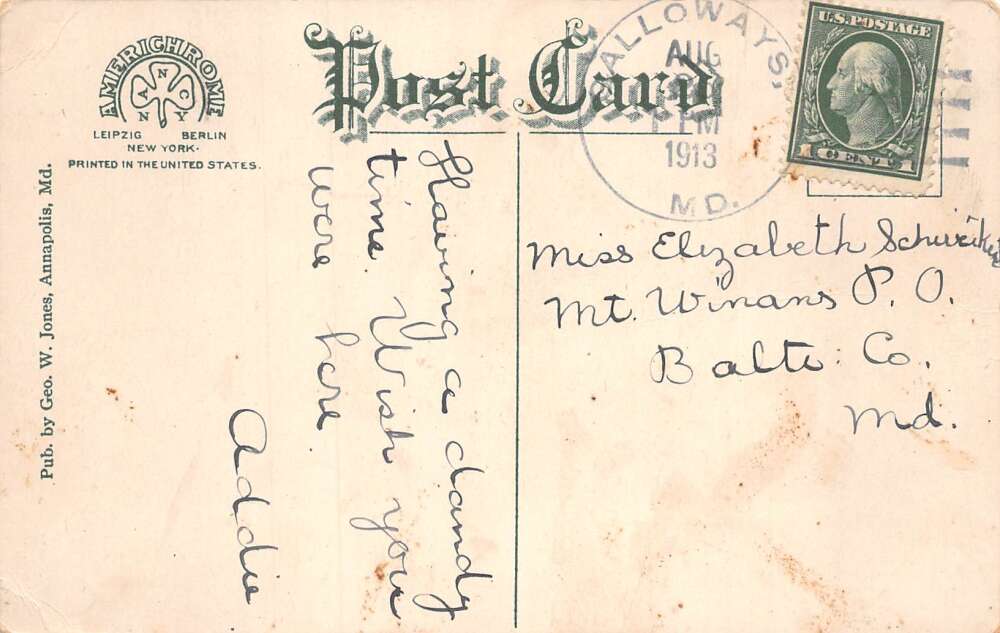 AMERICHROME
ANNCY
LEIPZIG BERLIN
NEW YORK.
PRINTED IN THE UNITED STATES.
Pub. by Geo. W. Jones, Annapolis, Md.
Post Card
GALLOWAYS,
AUG
PM
1913
MD.
U.S. POSTAGE
1 CENT 1
Having a dandy
time. Wish you
were here
Addie
Miss Elizabeth
Mt. Winans P. O.
Balto. Co.
Md.